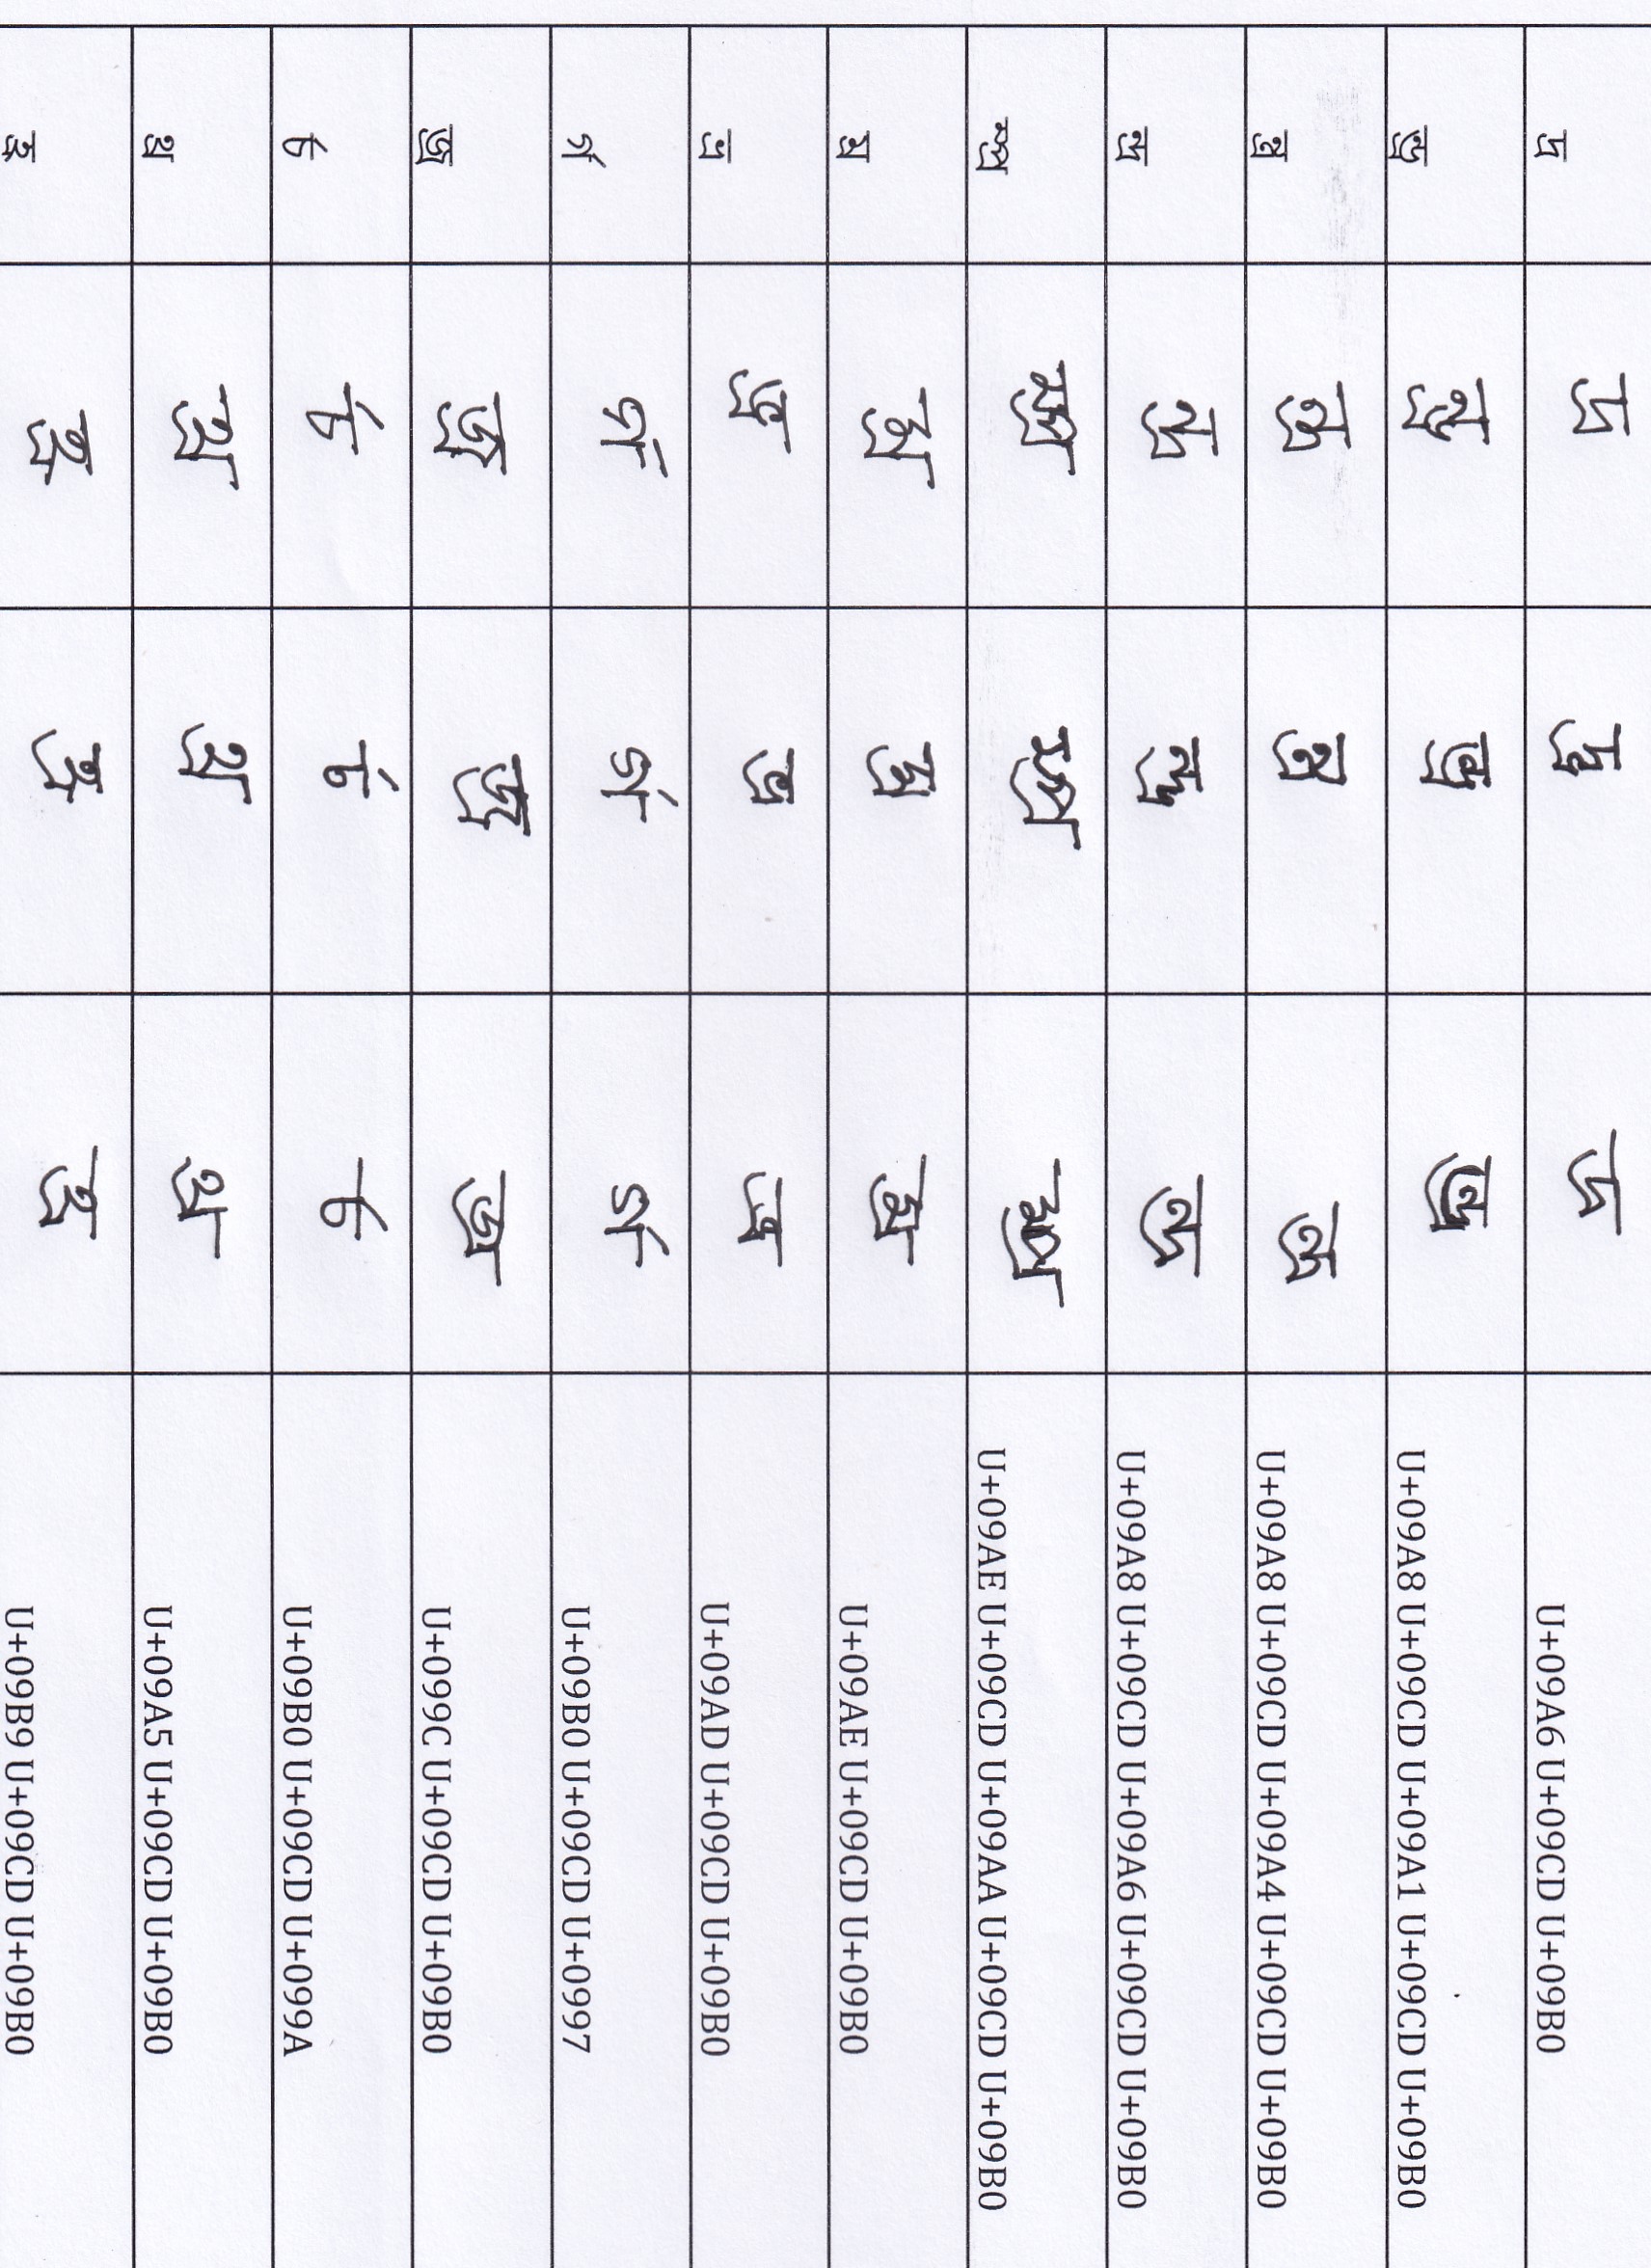 দ্র দ্র দ্র দ্র U+09A6 U+09CD U+09B0
ন্ড্র ন্ড্র ন্ড্র ন্ড্র U+09A8 U+09CD U+09A1 U+09CD U+09B0
ন্ত্র ন্ত্র ন্ত্র ন্ত্র U+09A8 U+09CD U+09A4 U+09CD U+09B0
ন্দ্র ন্দ্র ন্দ্র ন্দ্র U+09A8 U+09CD U+09A6 U+09CD U+09B0
ম্প্র ম্প্র ম্প্র ম্প্র U+09AE U+09CD U+09AA U+09CD U+09B0
ম্র ম্র ম্র ম্র U+09AE U+09CD U+09B0
ভ্র ভ্র ভ্র ভ্র U+09AD U+09CD U+09B0
র্গ র্গ র্গ র্গ U+09B0 U+09CD U+0997
জ্র জ্র জ্র জ্র U+099C U+09CD U+09B0
র্চ র্চ র্চ র্চ U+09B0 U+09CD U+099A
থ্র থ্র থ্র থ্র U+09A5 U+09CD U+09B0
হ্র হ্র হ্র হ্র U+09B9 U+09CD U+09B0